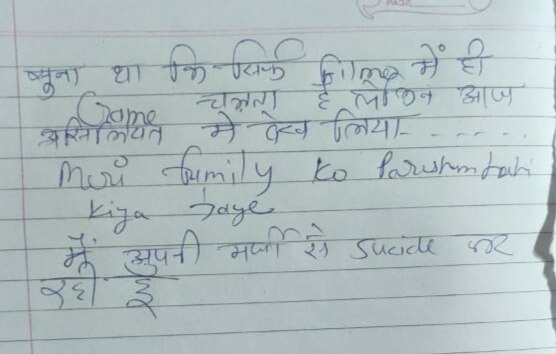 सुना था कि सिर्फ Films में ही
Game चलता है लेकिन आज
असिलियत मे देख लिया- - - - - -
Meri family ko Pareshan nahi
kiya jaye
मैं अपनी मर्जी से Sucide कर
रही हूं